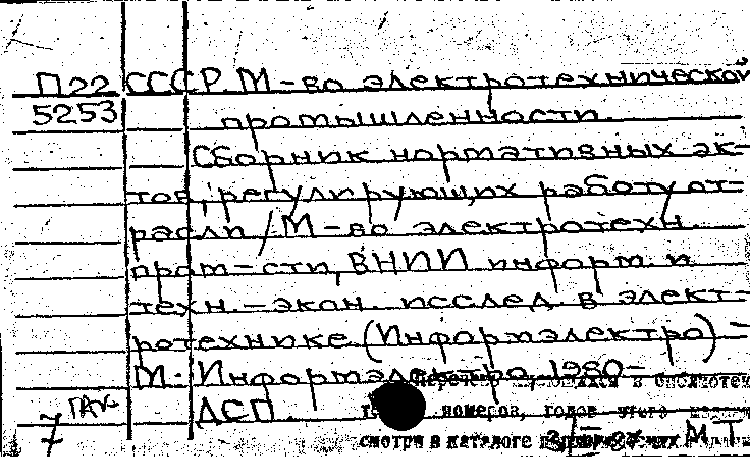 П22 СССР. М-во электротехнической
5253 промышленности.
Сборник нормативных ак-
тов, регулирующих работу от-
расли / М-во электротехн.
пром-сти, ВНИИ информ. и
техн.-экон. исслед. в элект-
ротехнике (Информэлектро) -
М.: Информэлектро, 1980-
Перечень имеющихся в библиотеке
ДСП.
номеров, годов этого издания
смотри в каталоге
7 М.Т.